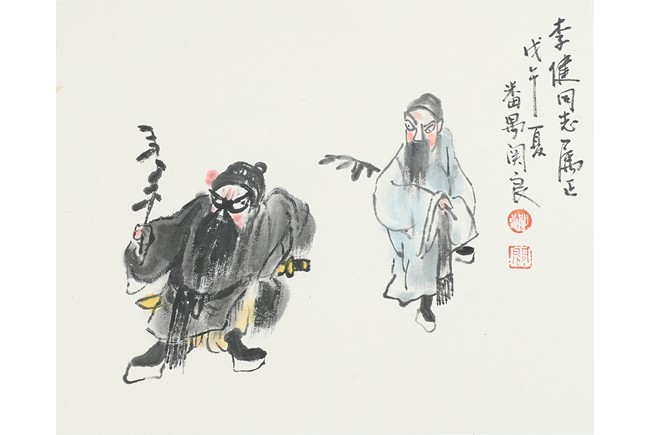 李健同志属正
戊午夏
番禺関良